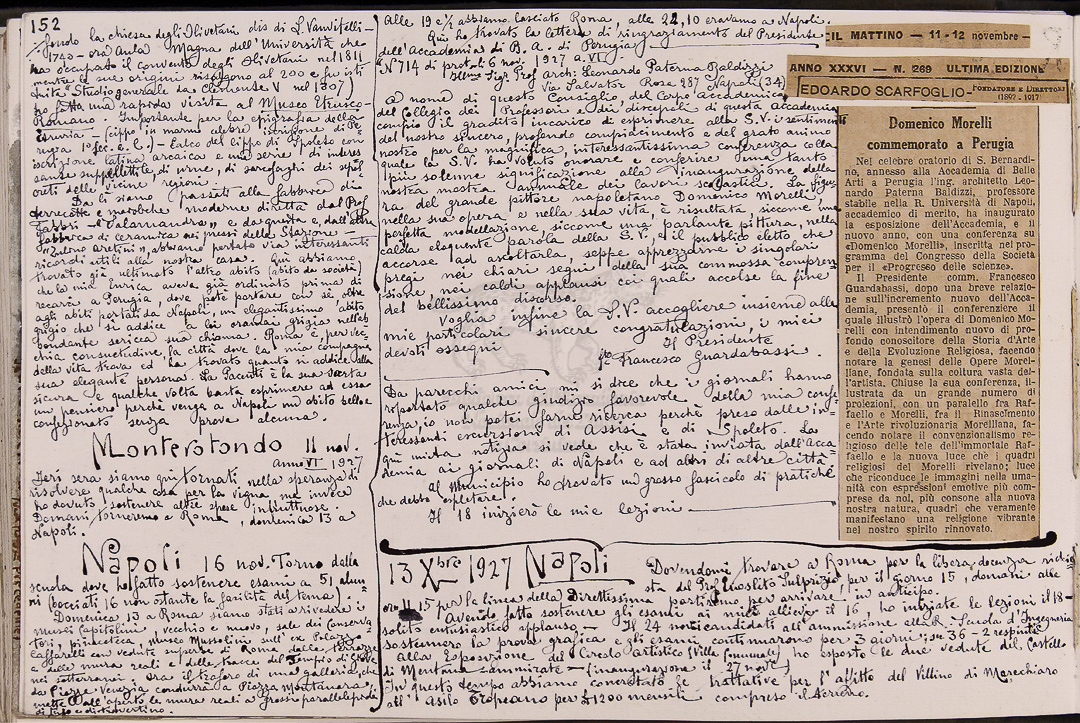 152
fondo la chiesa degli Olivetani dis di L. Vanvitelli -
1740 - ora Aula Magna dell'Università che
ha occupato il convento degli Olivetani nel 1811
mentre le sue origini risalgono al 200 e fu isti
tuita "Studio generale da Clemente V nel 1307)
po Una rapida visita al Museo Etrusco-
Romano. Importante per la epigrafia della
Etruria - (cippo in marmo celebre iscrizione di Pe
rugia 1º sec. a. C.) - Calco del Cippo di Spoleto con
iscrizione latina arcaica e una serie di interes
sante suppellettile di urne, di sarcofaghi dei sepol
creti delle vicine regioni.
Da lì siamo passati alla fabbrica di
terrecotte e maioliche moderne diretta dal Prof
Fabbri - "Salamandra" e da questa e dall'altra
fabbrica di ceramica nei pressi della Stazione -
"Zulli Artieri" abbiamo portato via interessanti
ricordi utili alla nostra casa. Qui abbiamo
trovato già ultimato l'altro abito (abito da società)
che la mia Enrica aveva già ordinato prima di
recarci a Perugia, dove poté portare con sé oltre
agli abiti portati da Napoli, un elegantissimo abito
grigio che si addice a lei oramai grigia nell'ab
bondante serica sua chioma. Roma è per vec-
chia consuetudine, la città dove la mia compagna
della vita trova ed ha trovato quanto si addice alla
sua elegante persona. La Pacenti è la sua sarta
sicura e qualche volta basta esprimere ad essa
un pensiero perché venga a Napoli un abito bello e
confezionato senza prove alcuna
Monterotondo 11 nov.
Anno VI 1927
Ieri sera siamo qui tornati nella speranza di
risolvere qualche cosa per la vigna ma invece
ho dovuto sostenere altre spese infruttuose.
Domani torneremo a Roma, domenica 13 a
Napoli.
Napoli 16 nov. Torno dalla
scuola dove ho fatto sostenere esami a 51 alun
ni (bocciati 16 non ostante la facilità del tema).
Domenica 13 a Roma siamo stati a rivedere i
musei Capitolini, vecchio e nuovo, sale dei Conserva
tori, pinacoteca, museo Mussolini sull'ex Palazzo
Caffarelli con vedute superbe di Roma dalle terrazze
e dalle mura reali e delle tracce del Tempio di Giove
nei sotterranei. Ora il traforo di una galleria che
da Piazza Venezia condurrà a Piazza Montanara,
mette all'aperto le mura reali a grossi parallelepipedi
di tufo e di travertino.
Alle 19 e ½ abbiamo lasciato Roma, alle 22,10 eravamo a Napoli.
Qui ho trovato la lettera di ringraziamento del Presidente
dell'Accademia di B. A. di Perugia
"Nº 714 di protoc. 6 nov. 1927 a. VI
Illmo Sigr Prof arch: Leonardo Paterna Baldizzi
Via Salvator Rosa 287 Napoli (34)
A nome di questo Consiglio del Corpo Accademico
del Collegio dei Professori e dei discepoli di questa Accademia
compio il gradito incarico di esprimere alla S.V. i sentimenti
del nostro sincero, profondo compiacimento e del grato animo
nostro per la magnifica, interessantissima conferenza colla
quale la S.V. ha voluto onorare e conferire una tanto
più solenne significazione alla inaugurazione della
nostra mostra annuale dei lavori scolastici. La figu=
ra del grande pittore napoletano Domenico Morelli,
nella sua opera e nella sua vita, è risultata, siccome una
perfetta modellazione, siccome una parlante pittura, nella
calda eloquente parola della S.V. e il pubblico eletto che
accorse ad ascoltarla, seppe apprezzarne i singolari
pregi nei chiari segni della sua commossa compren-
sione, nei caldi applausi coi quali accolse la fine
del bellissimo discorso.
Voglia infine la S.V. accogliere insieme alle
mie particolari sincere congratulazioni, i miei
devoti ossequi
Il Presidente
fto Francesco Guardabassi.
Da parecchi amici mi si dice che i giornali hanno
riportato qualche giudizio favorevole della mia confe=
renza, io non potei farne ricerca perché preso dalle in=
teressanti escursioni di Assisi e di Spoleto. La
qui unita notizia si vede che è stata inviata dall'Acca
demia ai giornali di Napoli e ad altri di altre città.
Al Municipio ho trovato un grosso fascicolo di pratiche
che debbo espletare!
Il 18 inizierò le mie lezioni.
IL MATTINO — 11-12 novembre —
ANNO XXXVI — N. 269 ULTIMA EDIZIONE
EDOARDO SCARFOGLIO - FONDATORE E DIRETTORE
(1892-1917)
Domenico Morelli
commemorato a Perugia
Nel celebre oratorio di S. Bernardi-
no, annesso alla Accademia di Belle
Arti a Perugia l'ing. architetto Leo-
nardo Paterna Baldizzi, professore
stabile nella R. Università di Napoli,
accademico di merito, ha inaugurato
la esposizione dell'Accademia, e il
nuovo anno, con una conferenza su
«Domenico Morelli», inscritta nel pro-
gramma del Congresso della Società
per il «Progresso delle scienze».
Il Presidente comm. Francesco
Guardabassi, dopo una breve relazio-
ne sull'incremento nuovo dell'Acca-
demia, presentò il conferenziere il
quale illustrò l'opera di Domenico Mo-
relli con intendimento nuovo di pro-
fondo conoscitore della Storia d'Arte
e della Evoluzione Religiosa, facendo
notare la genesi delle Opere Morel-
liane, fondata sulla coltura vasta del-
l'artista. Chiuse la sua conferenza, il-
lustrata da un grande numero di
proiezioni, con un paralelo fra Raf-
faello e Morelli, fra il Rinascimento
e l'Arte rivoluzionaria Morelliana, fa-
cendo notare il convenzionalismo re-
ligioso delle tele dell'immortale Raf-
faello e la nuova luce che i quadri
religiosi del Morelli rivelano; luce
che riconduce le immagini nella uma-
nità con espressioni emotive più com-
prese da noi, più consone alla nuova
nostra natura, quadri che veramente
manifestano una religione vibrante
nel nostro spirito rinnovato.
13 Xbre 1927 Napoli Dovendomi trovare a Roma per la libera docenza richie=
sta del Prof Luoslito Sulprizio, per il giorno 15, domani alle
ore 15 per la linea della Direttissima partiremo per arrivare in anticipo.
Avendo fatto sostenere gli esami ai miei allievi il 16, ho iniziate le lezioni il 18 -
solito entusiastico applauso - Il 24 nov i candidati all'ammissione alla R. Scuola d'Ingegneria
sostennero la prova grafica e gli esami continuarono per 3 giorni; su 36 - 2 respinti
Alla Esposizione del Circolo Artistico (Villa Comunale) ho esposto le due vedute del Castello
di Mentana - ammirate - (inaugurazione il 27 nov.)
In questo tempo abbiamo concretato le trattative per l'affitto del Villino di Marechiaro
all'Asilo Europeano per £1200 mensili compreso il terreno.